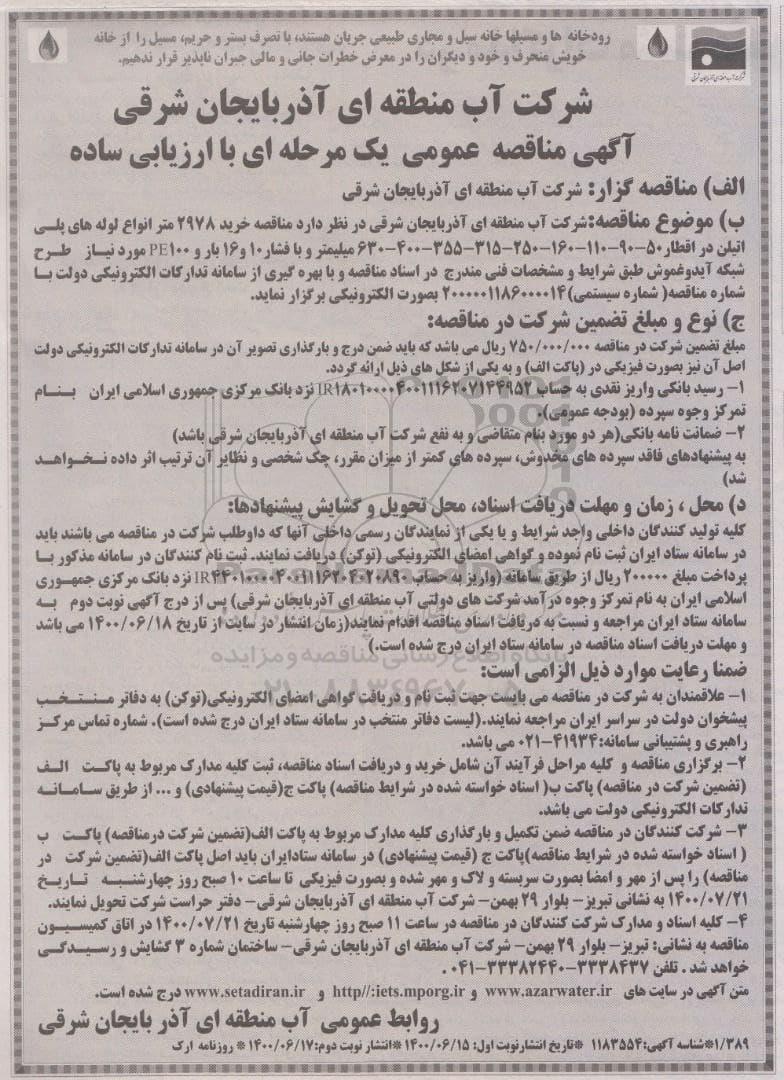 رودخانه ها و مسیلها خانه سیل و مجاری طبیعی جریان هستند، با تصرف بستر و حریم، مسیل را از خانه
خویش منحرف و خود و دیگران را در معرض خطرات جانی و مالی جبران ناپذیر قرار ندهیم.
شرکت آب منطقه ای آذربایجان شرقی
شرکت آب منطقه ای آذربایجان شرقی
آگهی مناقصه عمومی یک مرحله ای با ارزیابی ساده
الف) مناقصه گزار: شرکت آب منطقه ای آذربایجان شرقی
ب) موضوع مناقصه:شرکت آب منطقه ای آذربایجان شرقی در نظر دارد مناقصه خرید ۲۹۷۸ متر انواع لوله های پلی
اتیلن در اقطار۵۰-۹۰-۱۱۰-۱۶۰-۲۵۰-۳۱۵-۳۵۵-۴۰۰-۶۳۰ میلیمتر و با فشار۱۰ و۱۶ بار و PE۱۰۰ مورد نیاز طرح
شبکه آیدوغموش طبق شرایط و مشخصات فنی مندرج در اسناد مناقصه و با بهره گیری از سامانه تدارکات الکترونیکی دولت با
شماره مناقصه( شماره سیستمی)۲۰۰۰۰۰۱۱۸۶۰۰۰۰۱۴ بصورت الکترونیکی برگزار نماید.
ج) نوع و مبلغ تضمین شرکت در مناقصه:
مبلغ تضمین شرکت در مناقصه ۷۵۰/۰۰۰/۰۰۰ ریال می باشد که باید ضمن درج و بارگذاری تصویر آن در سامانه تدارکات الکترونیکی دولت
اصل آن نیز بصورت فیزیکی در (پاکت الف) و به یکی از شکل های ذیل ارائه گردد.
۱- رسید بانکی واریز نقدی به حساب IR۱۸۰۱۰۰۰۰۴۰۰۱۱۱۶۲۰۷۱۴۴۹۵۲ نزد بانک مرکزی جمهوری اسلامی ایران بنام
تمرکز وجوه سپرده (بودجه عمومی).
۲- ضمانت نامه بانکی(هر دو مورد بنام متقاضی و به نفع شرکت آب منطقه ای آذربایجان شرقی باشد)
به پیشنهادهای فاقد سپرده های مخدوش، سپرده های کمتر از میزان مقرر، چک شخصی و نظایر آن ترتیب اثر داده نخواهد
شد)
د) محل ، زمان و مهلت دریافت اسناد، محل تحویل و گشایش پیشنهادها:
کلیه تولید کنندگان داخلی واجد شرایط و یا یکی از نمایندگان رسمی داخلی آنها که داوطلب شرکت در مناقصه می باشند باید
در سامانه ستاد ایران ثبت نام نموده و گواهی امضای الکترونیکی (توکن) دریافت نمایند. ثبت نام کنندگان در سامانه مذکور با
پرداخت مبلغ ۲۰۰۰۰۰ ریال از طریق سامانه (واریز به حساب IR۴۴۰۱۰۰۰۰۴۰۰۱۱۱۶۲۰۴۰۲۰۸۹۰ نزد بانک مرکزی جمهوری
اسلامی ایران به نام تمرکز وجوه درآمد شرکت های دولتی آب منطقه ای آذربایجان شرقی) پس از درج آگهی نوبت دوم به
سامانه ستاد ایران مراجعه و نسبت به دریافت اسناد مناقصه اقدام نمایند(زمان انتشار در سایت از تاریخ ۱۴۰۰/۰۶/۱۸ می باشد
و مهلت دریافت اسناد مناقصه در سامانه ستاد ایران درج شده است.)
ضمنا رعایت موارد ذیل الزامی است:
۱- علاقمندان به شرکت در مناقصه می بایست جهت ثبت نام و دریافت گواهی امضای الکترونیکی(توکن) به دفاتر منتخب
پیشخوان دولت در سراسر ایران مراجعه نمایند.(لیست دفاتر منتخب در سامانه ستاد ایران درج شده است). شماره تماس مرکز
راهبری و پشتیبانی سامانه:۴۱۹۳۴-۰۲۱ می باشد.
۲- برگزاری مناقصه و کلیه مراحل فرآیند آن شامل خرید و دریافت اسناد مناقصه، ثبت کلیه مدارک مربوط به پاکت الف
(تضمین شرکت در مناقصه) پاکت ب( اسناد خواسته شده در شرایط مناقصه) پاکت ج(قیمت پیشنهادی) و ... از طریق سامانه
تدارکات الکترونیکی دولت می باشد.
۳- شرکت کنندگان در مناقصه ضمن تکمیل و بارگذاری کلیه مدارک مربوط به پاکت الف(تضمین شرکت درمناقصه) پاکت ب
( اسناد خواسته شده در شرایط مناقصه)پاکت ج (قیمت پیشنهادی) در سامانه ستادایران باید اصل پاکت الف(تضمین شرکت در
مناقصه) را پس از مهر و امضا بصورت سربسته و لاک و مهر شده و بصورت فیزیکی تا ساعت ۱۰ صبح روز چهارشنبه تاریخ
۱۴۰۰/۰۷/۲۱ به نشانی تبریز- بلوار ۲۹ بهمن- شرکت آب منطقه ای آذربایجان شرقی- دفتر حراست شرکت تحویل نمایند.
۴- کلیه اسناد و مدارک شرکت کنندگان در مناقصه در ساعت ۱۱ صبح روز چهارشنبه تاریخ ۱۴۰۰/۰۷/۲۱ در اتاق کمیسیون
مناقصه به نشانی: تبریز- بلوار ۲۹ بهمن- شرکت آب منطقه ای آذربایجان شرقی- ساختمان شماره ۳ گشایش و رسیدگی
خواهد شد . تلفن ۳۳۳۸۴۳۷-۳۳۳۸۲۴۴۰-۰۴۱ .
متن آگهی در سایت های www.azarwater.ir و http//:iets.mporg.ir و www.setadiran.ir درج شده است.
روابط عمومی آب منطقه ای آذر بایجان شرقی
۱/۳۸۹*شناسه آگهی:۱۱۸۳۵۵۴ *تاریخ انتشارنوبت اول: ۱۴۰۰/۰۶/۱۵ *انتشار نوبت دوم:۱۴۰۰/۰۶/۱۷ * روزنامه ارک